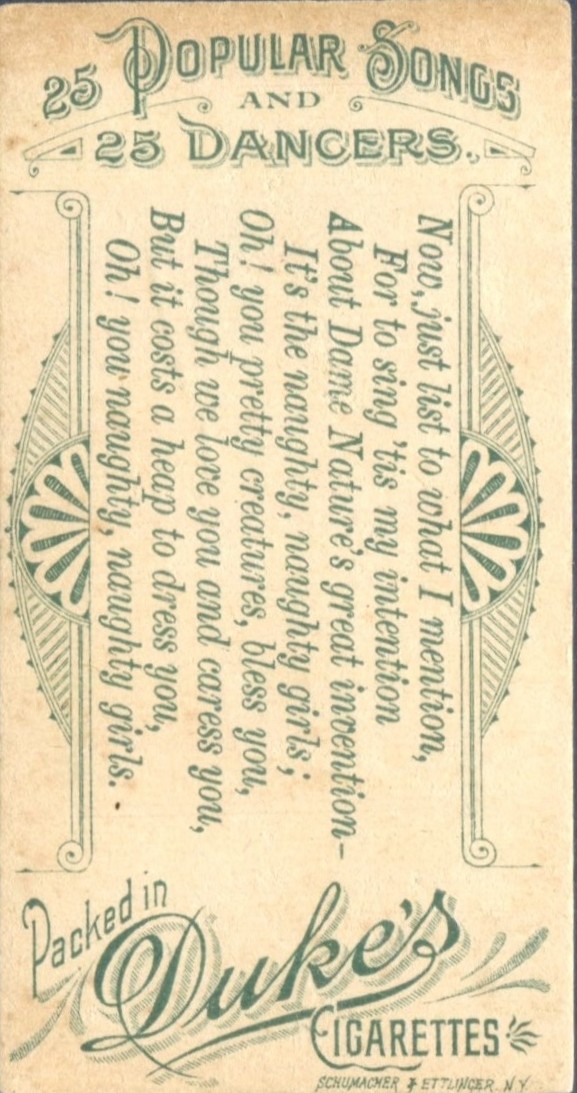 25 POPULAR SONGS
AND
25 DANCERS.
Now, just list to what I mention,
For to sing 'tis my intention
About Dame Nature's great invention—
It's the naughty, naughty girls;
Oh! you pretty creatures, bless you,
Though we love you and caress you,
But it costs a heap to dress you,
Oh! you naughty, naughty girls.
Packed in
Duke's
CIGARETTES
SCHUMACHER & ETTLINGER. N.Y.